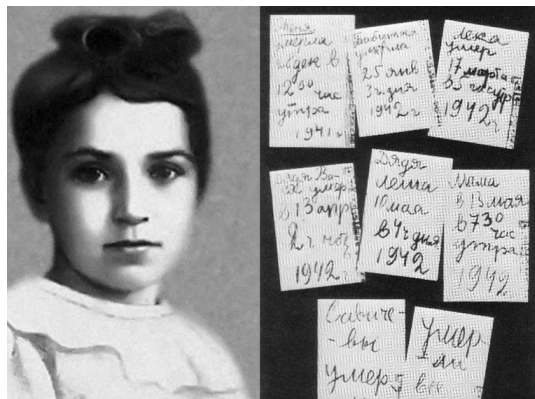 Женя
умерла
28 дек в
12 00 час
утра
1941 г
Бабушка
умерла
25 янв
3 ч. дня
1942 г
Лека
умер
17 марта
в 5 час утр
1942 г
Дядя Ва-
ся умер
в 13 апр
2 ч ноч
1942 г
Дядя
Леша
10 мая
в 4 ч дня
1942
Мама
в 13 мая
в 7 30 час
утра
1942
Савиче-
-вы
умер
умер-
ли
все